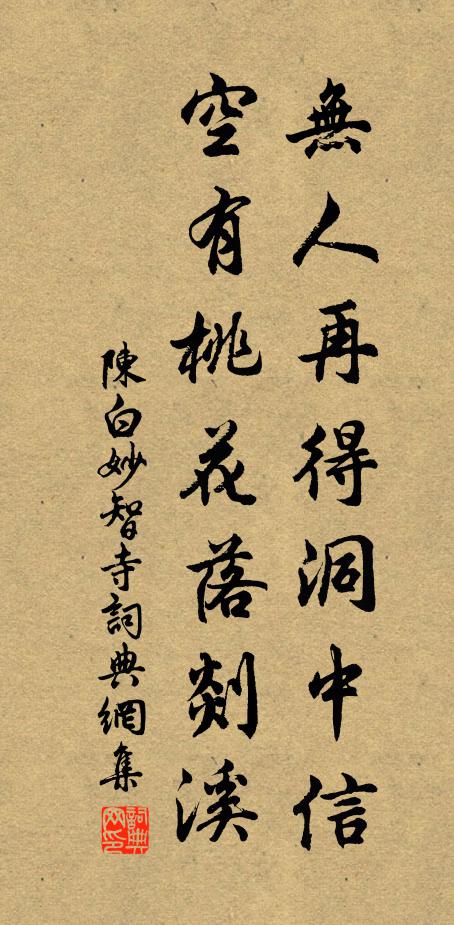 無人再得洞中信
空有桃花落剡溪
陳白妙智寺詞典網集
詞典網印